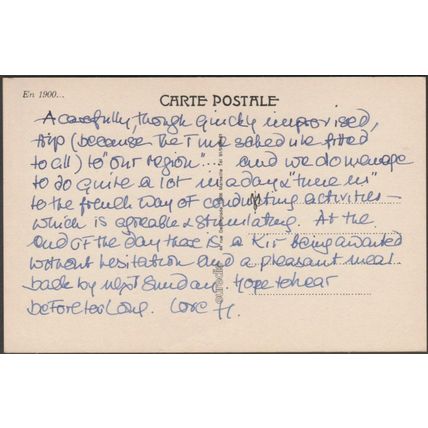 En 1900...
CARTE POSTALE
A carefully, though quickly improvised,
trip (because the Time schedule fitted
to all) to "our region".... and we do manage
to do quite a lot in a day & "tune in"
to the french way of conducting activities –
which is agreable & stimulating. At the
end of the day there is a Kir being awaited
without hesitation and a pleasant meal.
back by next Sunday. Hope to hear
before too long. Love